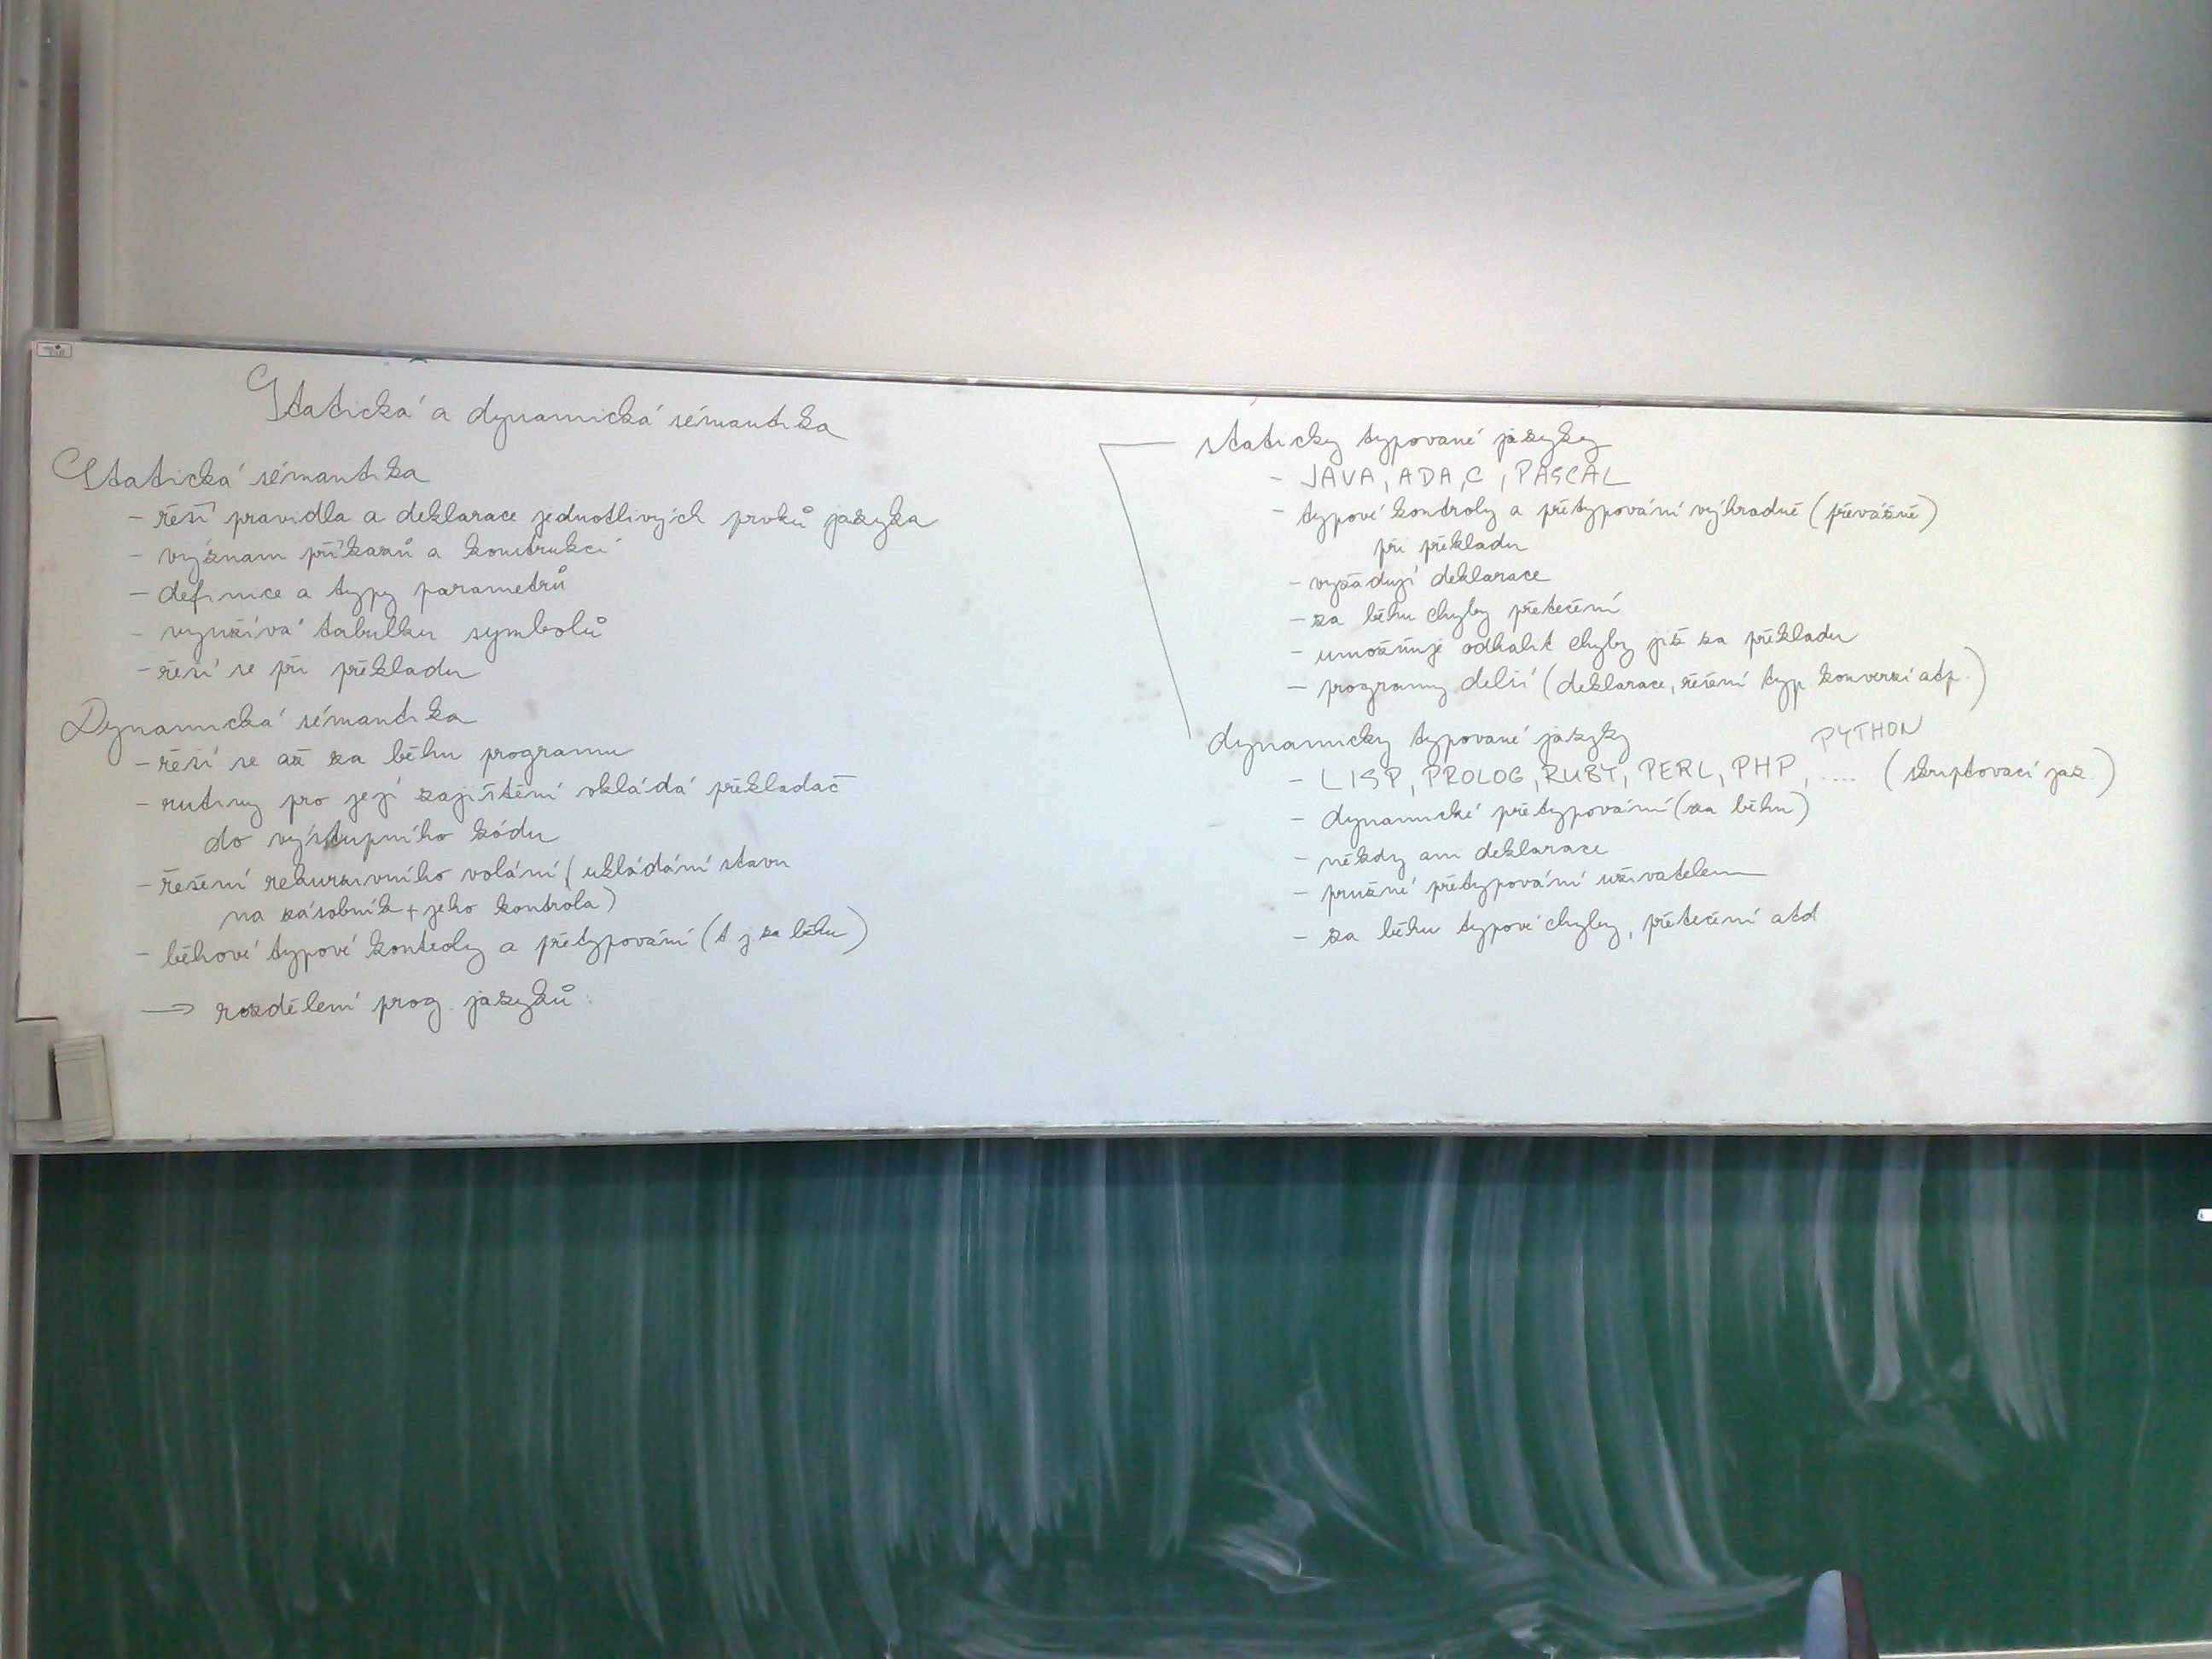 Statická a dynamická sémantika
Statická sémantika
- řeší pravidla a deklarace jednotlivých prvků jazyka
- význam příkazů a konstrukcí
- definice a typy parametrů
- využívá tabulku symbolů
- řeší se při překladu
Dynamická sémantika
- řeší se až za běhu programu
- rutiny pro její zajištění vkládá překladač
do výstupního kódu
- řešení rekurzivního volání (ukládání stavu
na zásobník + jeho kontrola)
- běhové typové kontroly a přetypování (t j za běhu)
→ rozdělení prog. jazyků:
staticky typované jazyky
- JAVA, ADA, C, PASCAL
- typové kontroly a přetypování výhradně (převážně)
při překladu
- vyžadují deklarace
- za běhu chyby přetečení
- umožňuje odhalit chyby již za překladu
- programy delší (deklarace, řešení typ. konverzí atp.)
dynamicky typované jazyky
PYTHON
- LISP, PROLOG, RUBY, PERL, PHP, .... (skriptovací jaz.)
- dynamické přetypování (za běhu)
- někdy ani deklarace
- pružné přetypování uživatelem
- za běhu typové chyby, přetečení atd